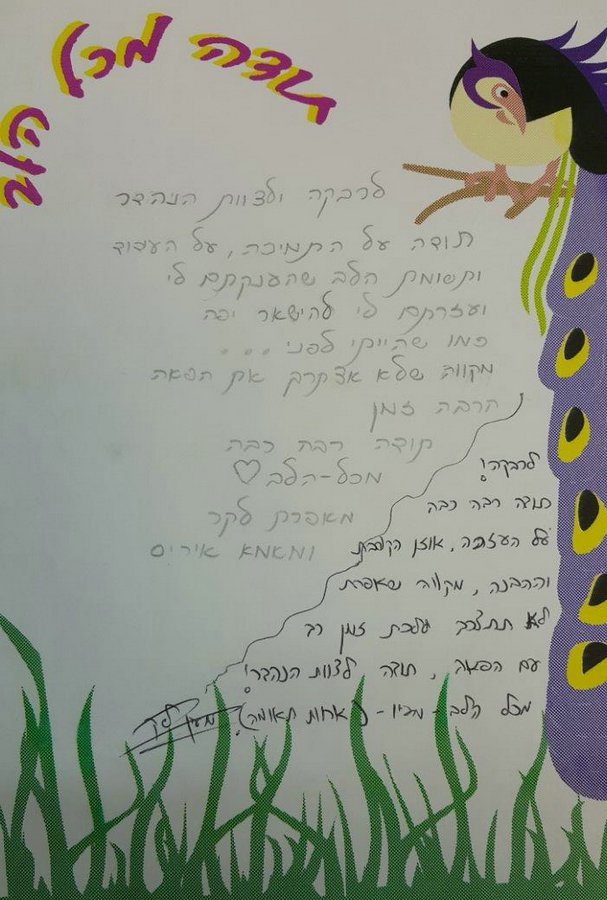 תודה מכל הלב
לרבקה ולצוות הנהדר
תודה על התמיכה, על העידוד
ותשומת הלב שהענקתם לי
ועזרתם לי להישאר יפה
כמו שהייתי לפני...
מקווה שלא אצטרך את הפאה
הרבה זמן
תודה רבה רבה
מכל-הלב ♡
מאפרת לקר
ומאמא איריס
לרבקה!
תודה רבה רבה
על העזרה, אוזן הקשבת
וההבנה, מקווה שאפרת
לא תצטרך ללכת זמן רב
עם הפאה, תודה לצוות הנהדר!
מכל הלב - - (אחות תאומה)